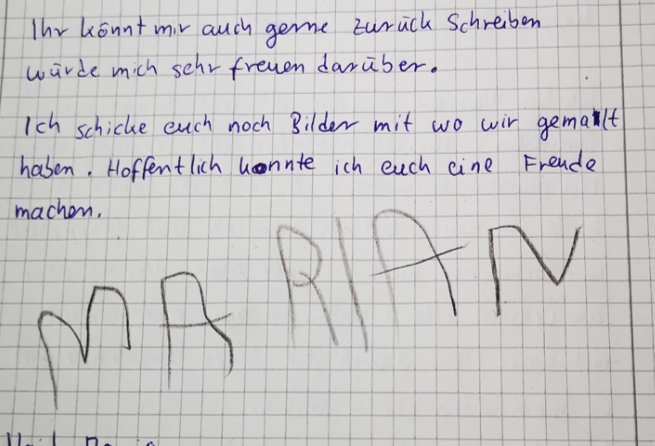 Ihr könnt mir auch gerne zurück Schreiben
würde mich sehr freuen darüber.
Ich schicke euch noch Bilder mit wo wir gemahlt
haben. Hoffentlich konnte ich euch eine Freude
machen.
MARIAN